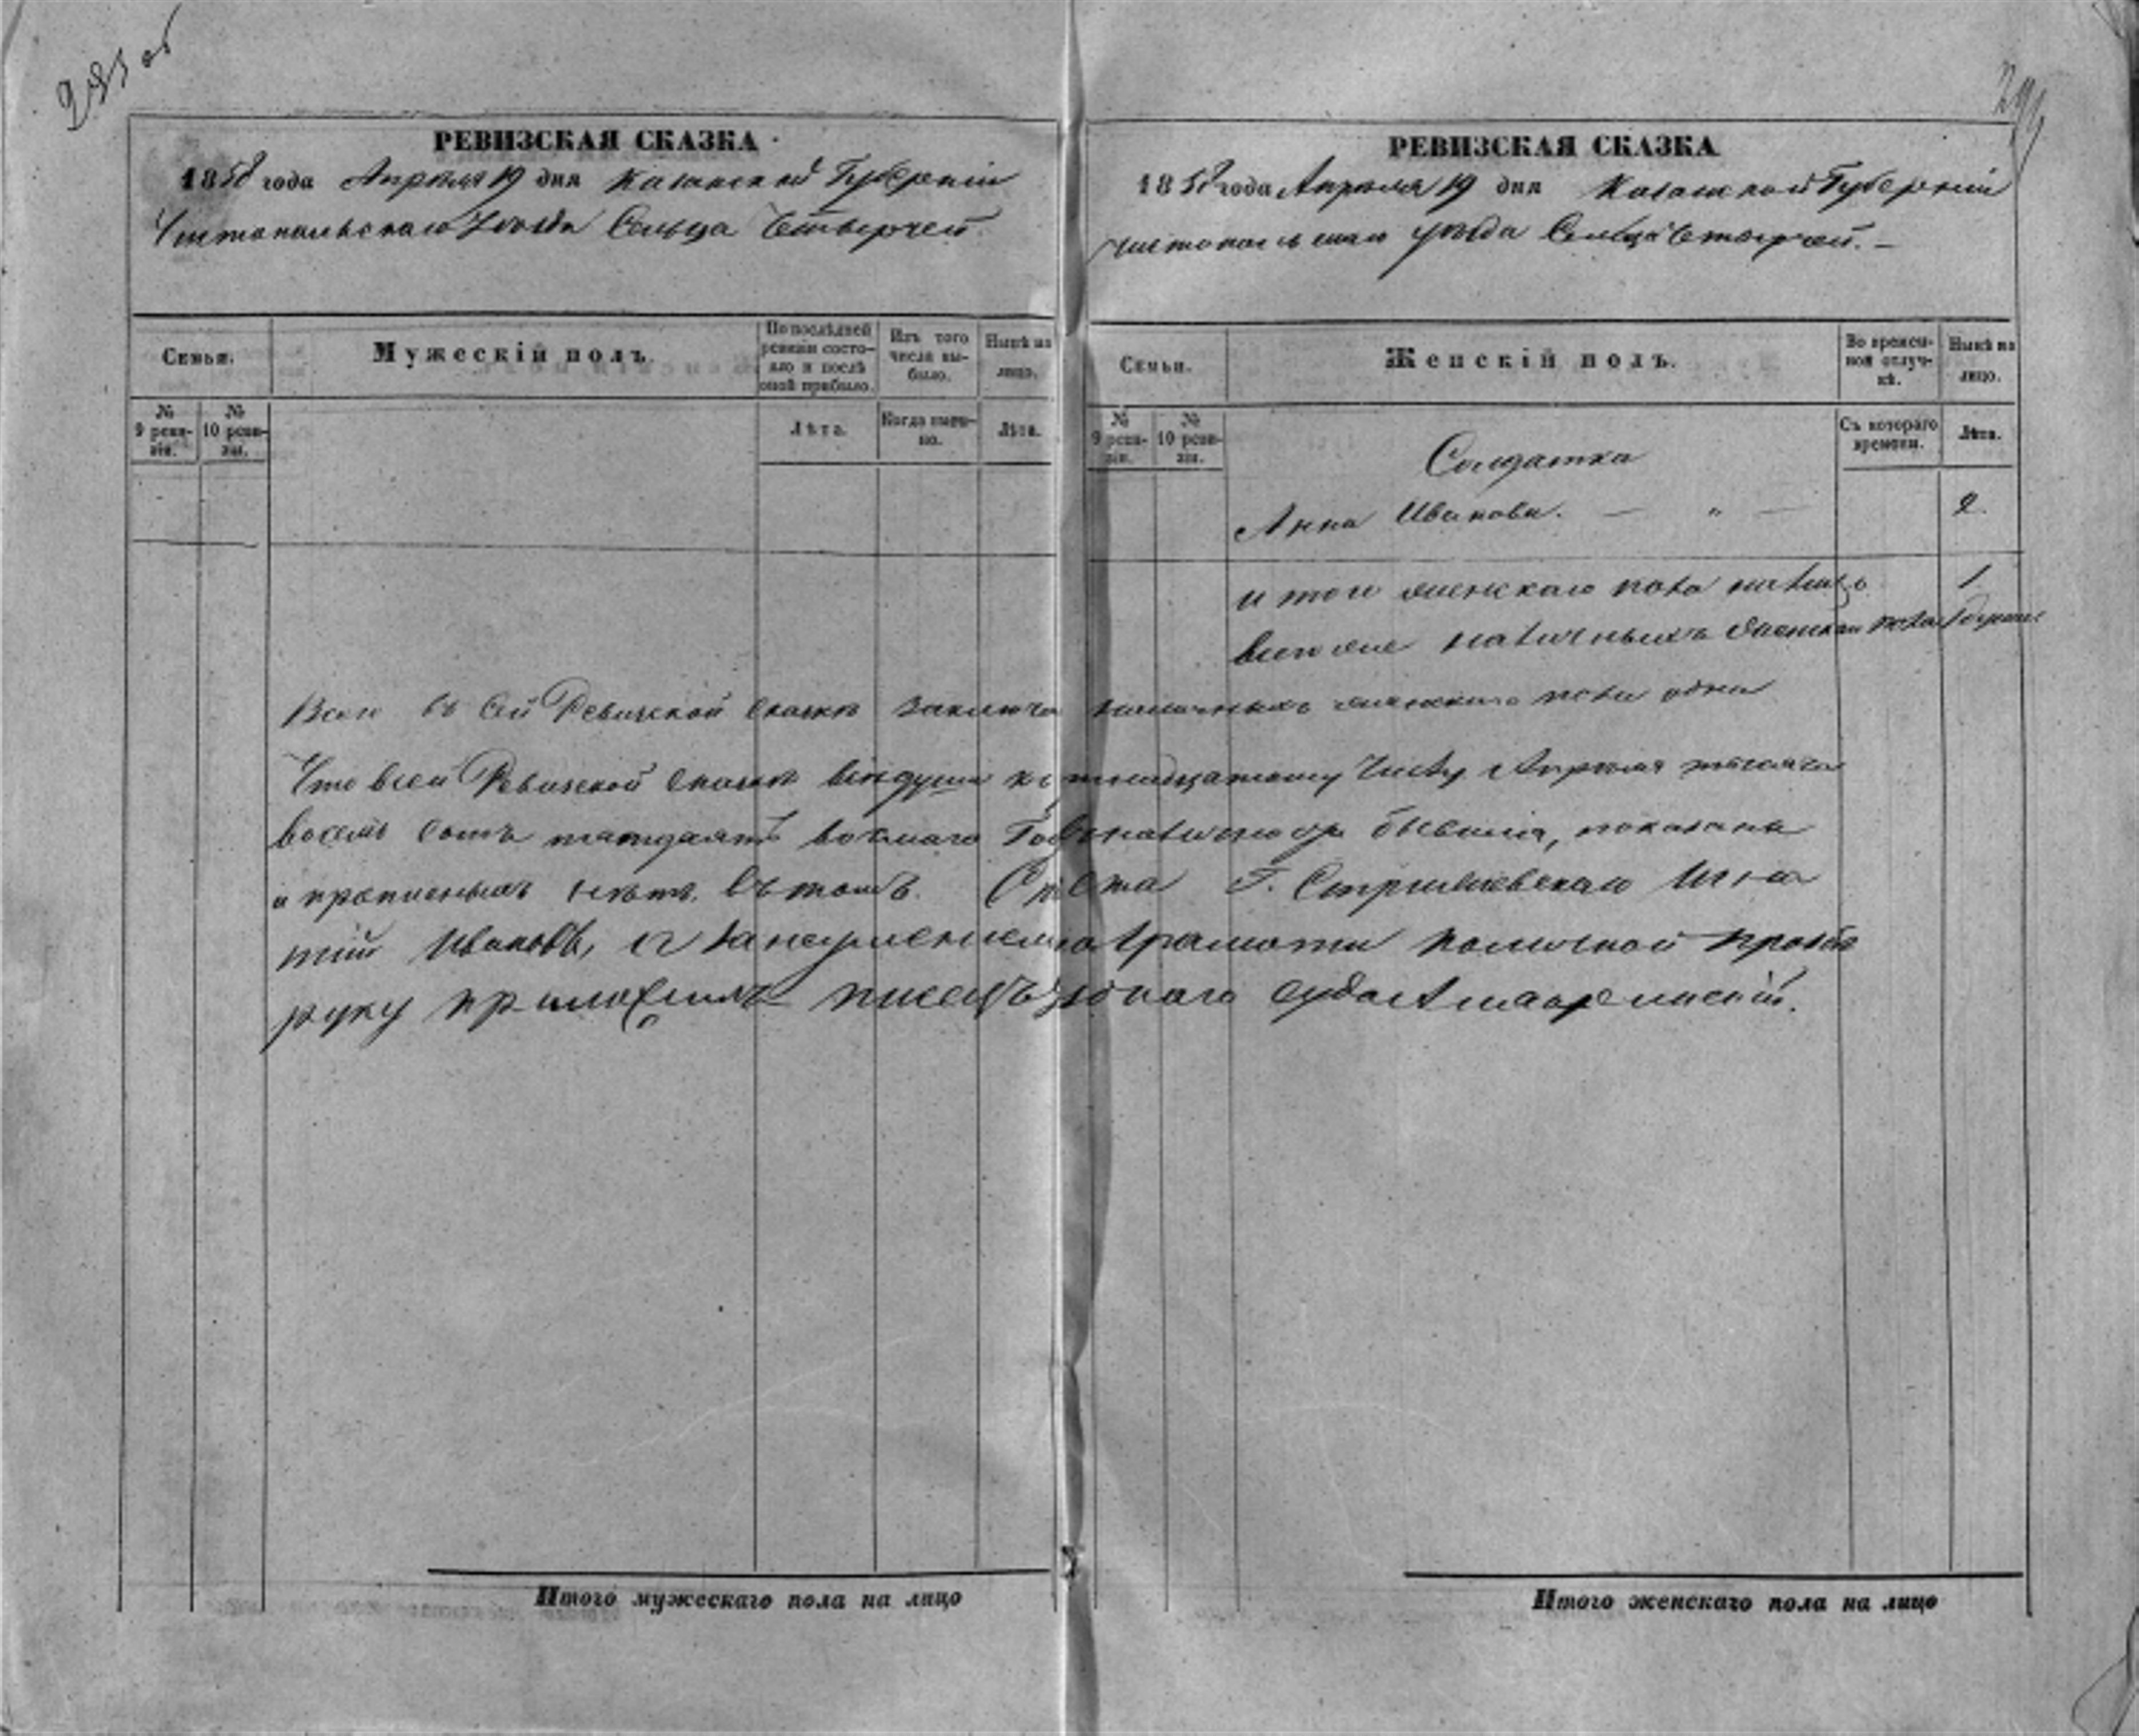 РЕВИЗСКАЯ СКАЗКА
1858 года Апреля 19 дня Казанской Губерніи
Чистопольскаго Уезда Сельца Четверчей
Семьи.
Мужескій полъ.
По послѣдней ревизіи состояло и послѣ оной прибыло.
Изъ того числа выбыло.
Нынѣ на лицо.
№ 9 ревизіи.
№ 10 ревизіи.
Лѣта.
Когда имянно.
Лѣта.
РЕВИЗСКАЯ СКАЗКА
1858 года Апреля 19 дня Казанской Губерніи
Чистопольскаго уезда Сельца Четверчей. –
Семьи.
Женскій полъ.
Во временной отлучкѣ.
Нынѣ на лицо.
№ 9 ревизіи.
№ 10 ревизіи.
Съ котораго времени.
Лѣта.
Солдатка
Анна Иванова. — „ — 2.
итого женскаго пола налицо 1
всего же наличныхъ женскаго пола 1 душа
Всего въ сей Ревизской сказке наличныхъ женскаго пола одна
Что в сей Ревизской сказке все души къ числу Апреля тысяча
восемь сотъ пятдесятъ восьмаго Года налицо бывшія, показаны
и прописныхъ нетъ. Въ томъ Г. Иг на
тій Ивановъ, а за неумениемъ грамоты по личной прозбе
руку приложилъ писецъ суда
Итого мужескаго пола на лицо
Итого женскаго пола на лицо